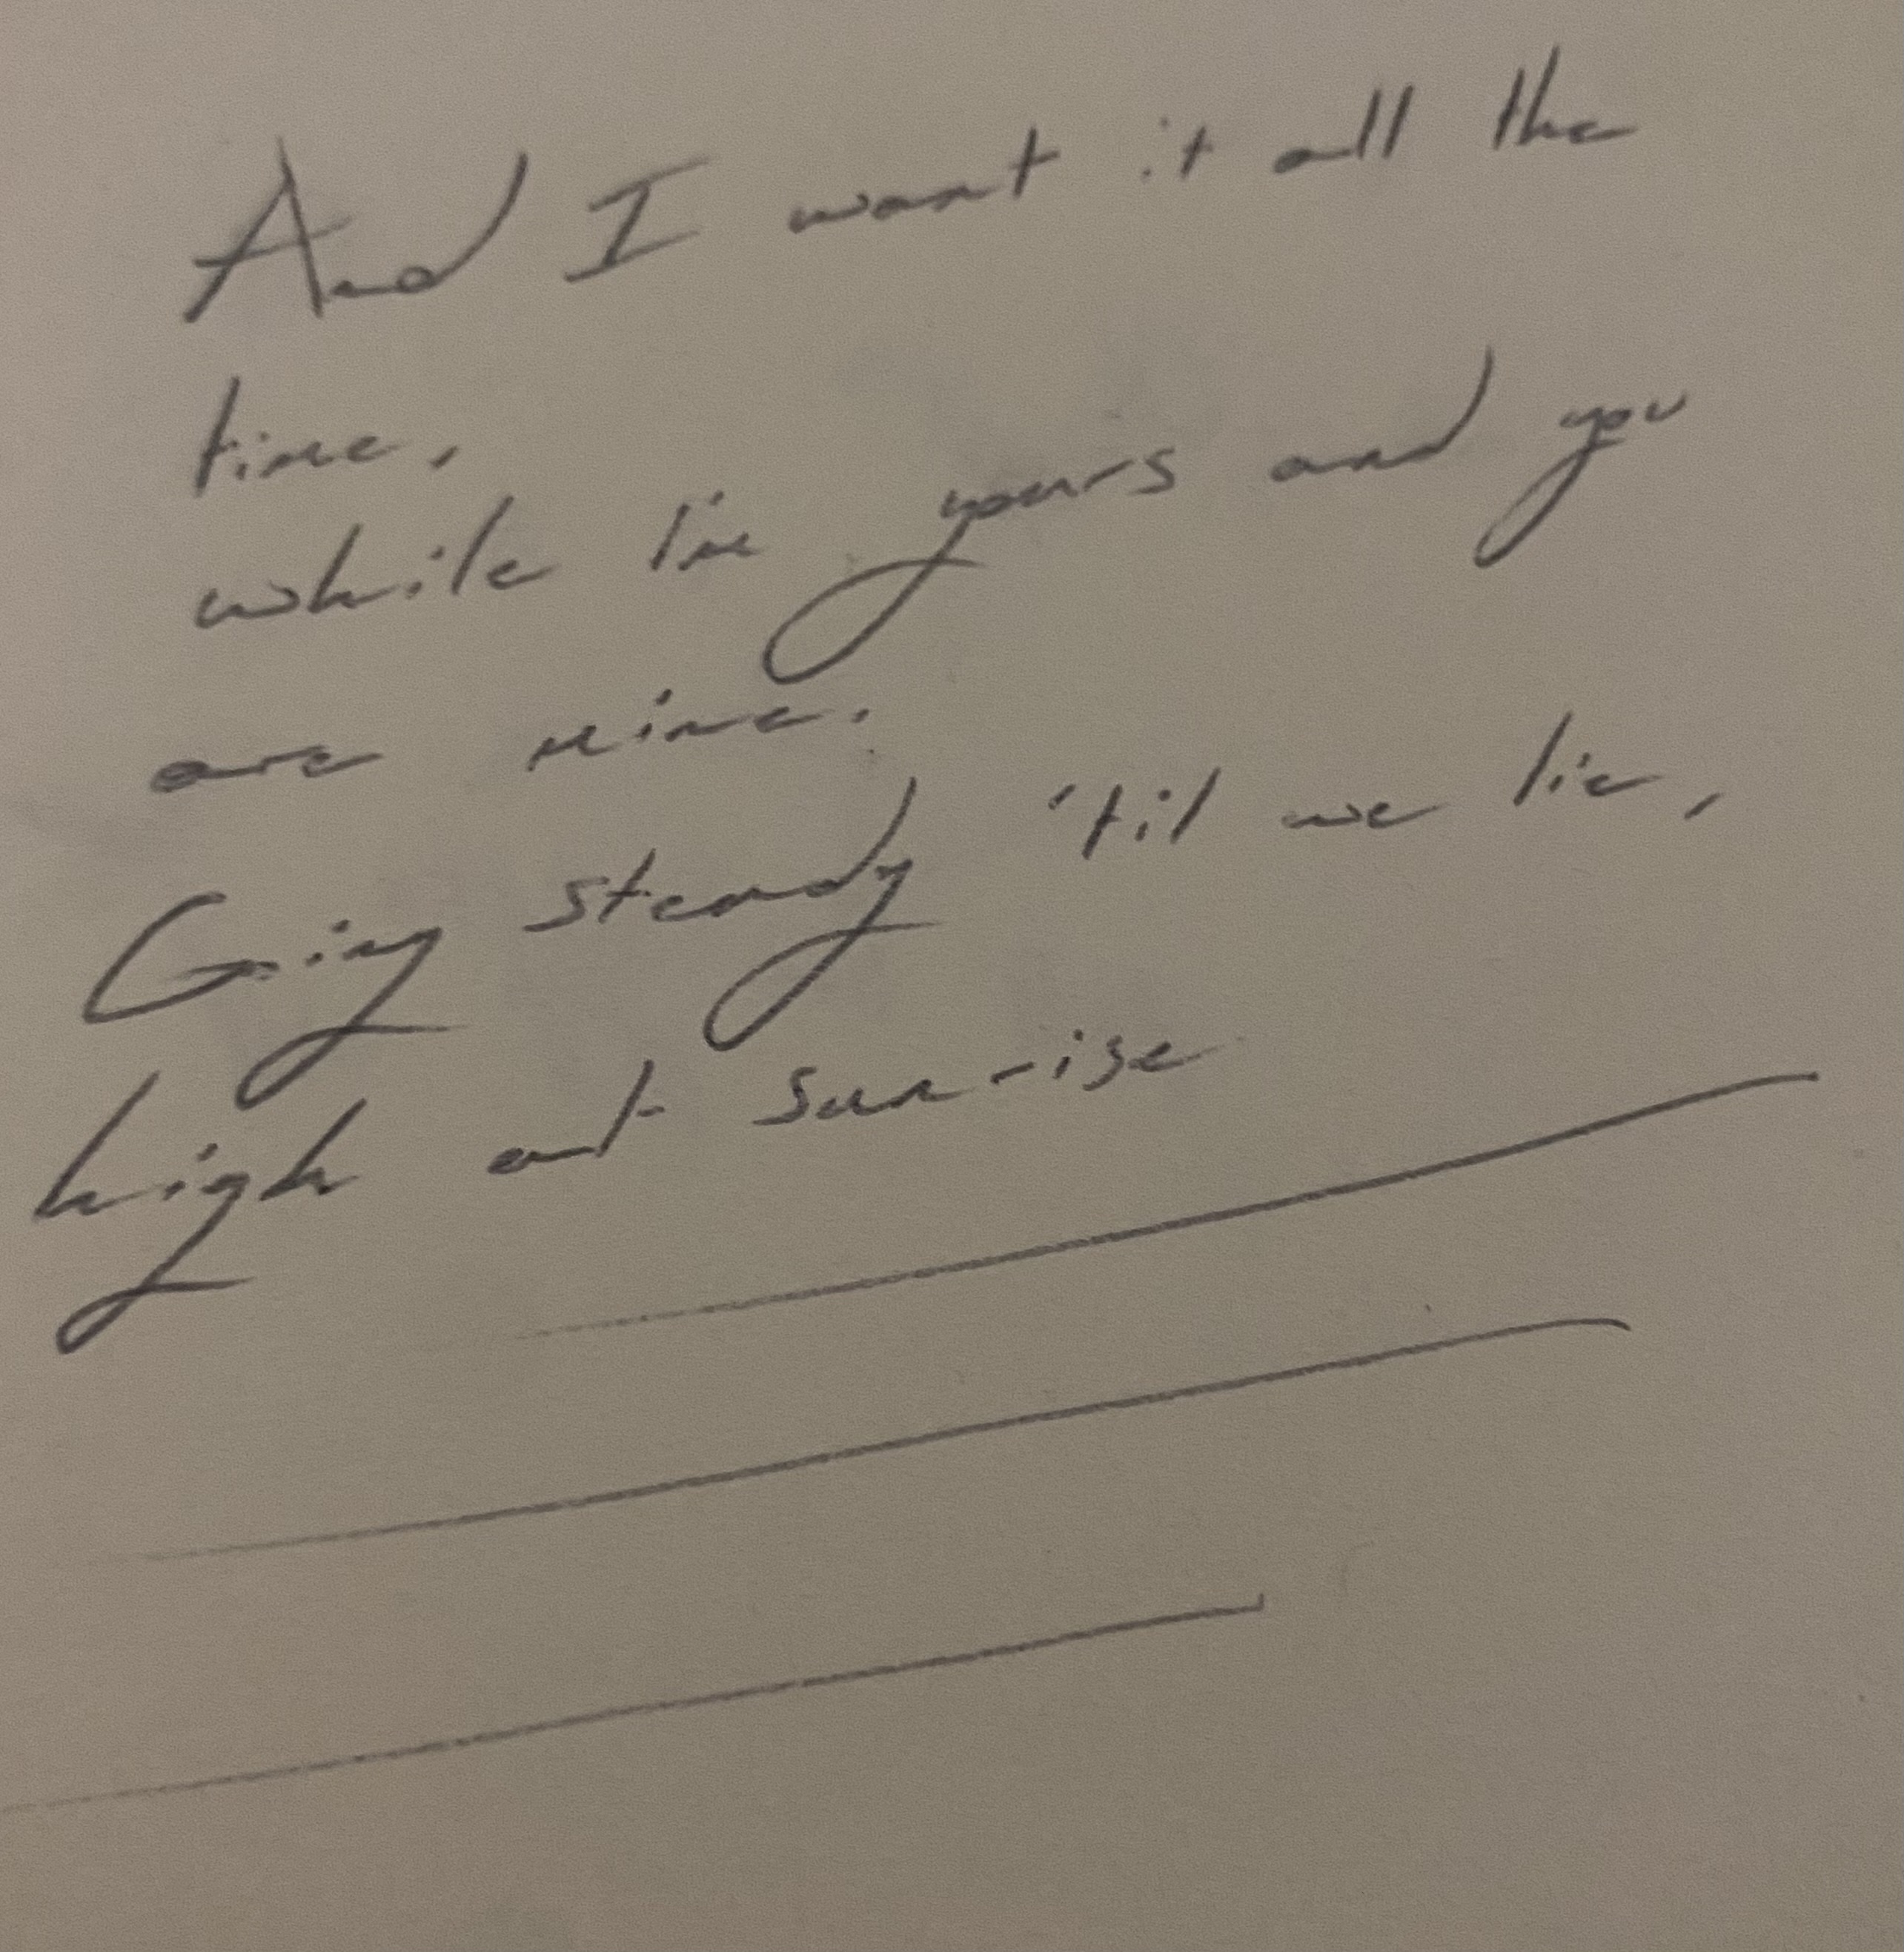 And I want it all the
time,
while I'm yours and you
are mine.
Going steady 'til we lie,
high at sunrise